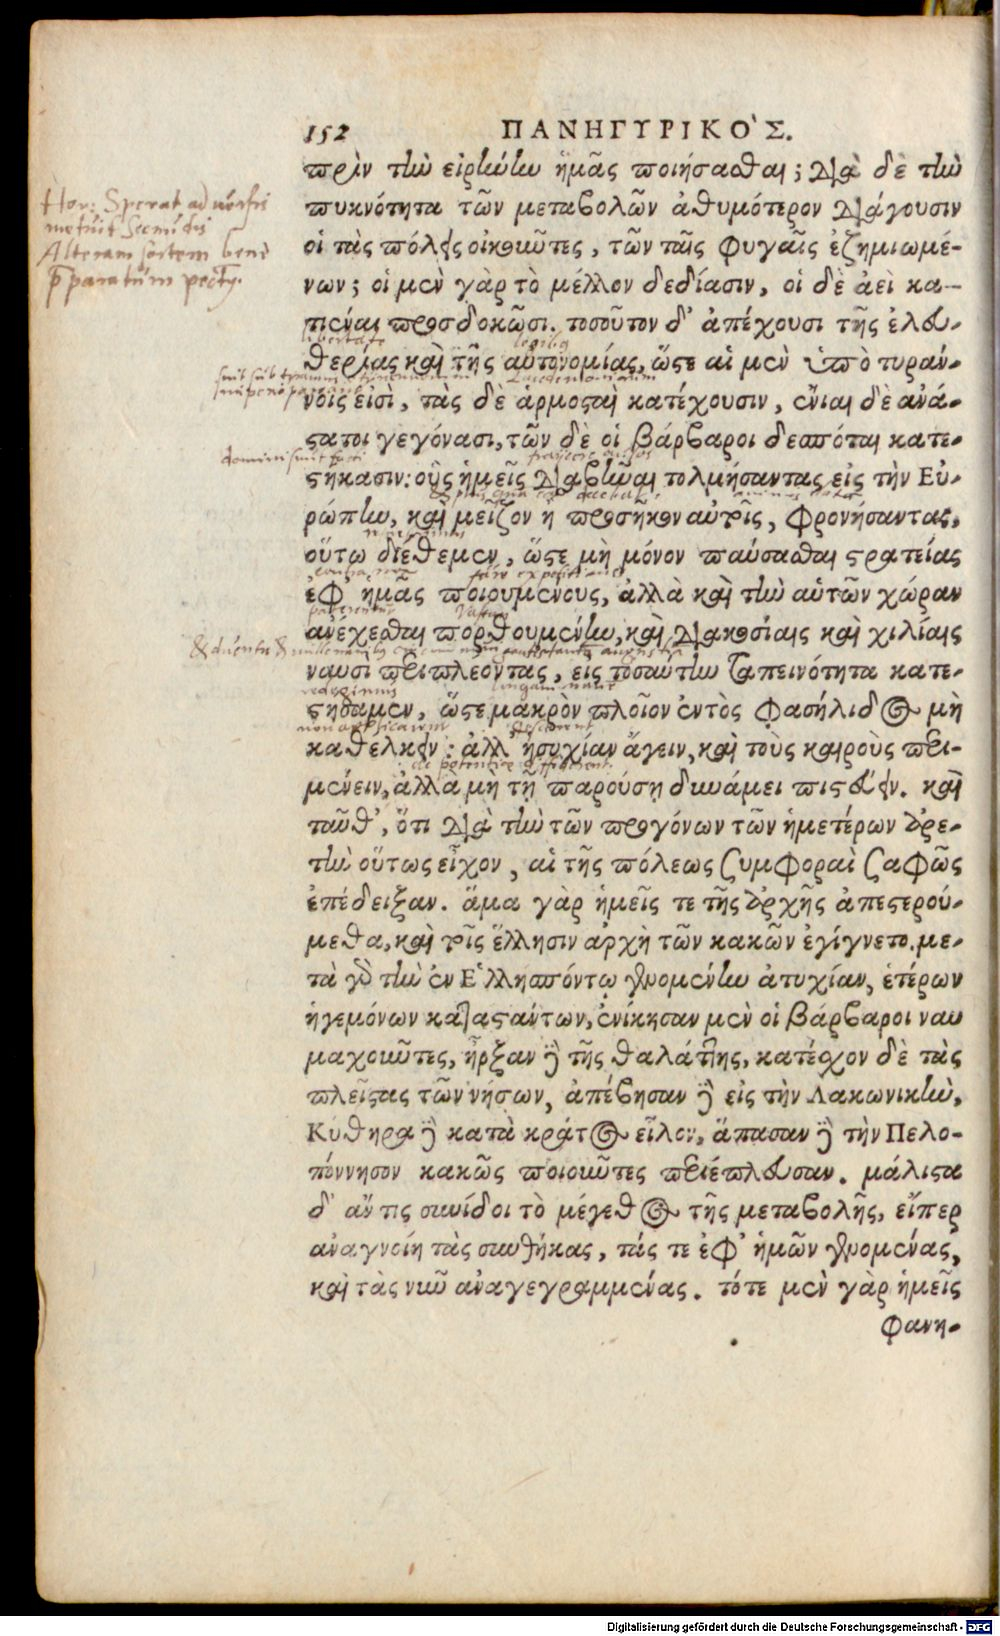 152 ΠΑΝΗΓΥΡΙΚΟ'Σ.
πρὶν τὴν εἰρήνην ἡμᾶς ποιήσασθαι; διὰ δὲ τὴν
πυκνότητα τῶν μεταβολῶν ἀθυμότερον διάγουσιν
οἱ τὰς πόλεις οἰκοῦντες, τῶν ταῖς φυγαῖς ἐζημιωμέ-
νων; οἱ μὲν γὰρ τὸ μέλλον δεδίασιν, οἱ δὲ ἀεὶ κα-
τιέναι προσδοκῶσι. τοσοῦτον δ' ἀπέχουσι τῆς ἐλευ-
θερίας καὶ τῆς αὐτονομίας, ὥστε αἱ μὲν ὑπὸ τυράν-
νοις εἰσὶ, τὰς δὲ ἁρμοσταὶ κατέχουσιν, ἔνιαι δὲ ἀνά-
στατοι γεγόνασι, τῶν δὲ οἱ βάρβαροι δεσπόται κατε-
στήκασιν: οὓς ἡμεῖς διαβῆναι τολμήσαντας εἰς τὴν Εὐ-
ρώπην, καὶ μεῖζον ἢ προσῆκον αὐτοῖς, φρονήσαντας,
οὕτω διέθεμεν, ὥστε μὴ μόνον παύσασθαι στρατείας
ἐφ' ἡμᾶς ποιουμένους, ἀλλὰ καὶ τὴν αὑτῶν χώραν
ἀνέχεσθαι πορθουμένην, καὶ διακοσίαις καὶ χιλίαις
ναυσὶ περιπλέοντας, εἰς τοσαύτην ταπεινότητα κατε-
στήσαμεν, ὥστε μακρὸν πλοῖον ἐντὸς Φασήλιδος μὴ
καθέλκειν: ἀλλ' ἡσυχίαν ἄγειν, καὶ τοὺς καιροὺς περι-
μένειν, ἀλλὰ μὴ τῇ παρούσῃ δυνάμει πιστεύειν. καὶ
ταῦθ', ὅτι διὰ τὴν τῶν προγόνων τῶν ἡμετέρων ἀρε-
τὴν οὕτως εἶχον, αἱ τῆς πόλεως συμφοραὶ σαφῶς
ἐπέδειξαν. ἅμα γὰρ ἡμεῖς τε τῆς ἀρχῆς ἀπεστερού-
μεθα, καὶ τοῖς ἕλλησιν ἀρχὴ τῶν κακῶν ἐγίγνετο. με-
τὰ γὰρ τὴν ἐν Ἑλλησπόντῳ γενομένην ἀτυχίαν, ἑτέρων
ἡγεμόνων καταστάντων, ἐνίκησαν μὲν οἱ βάρβαροι ναυ
μαχοῦντες, ἦρξαν δὲ τῆς θαλάττης, κατέσχον δὲ τὰς
πλείστας τῶν νήσων, ἀπέβησαν δὲ εἰς τὴν Λακωνικὴν,
Κύθηρα δὲ κατὰ κράτος εἷλον, ἅπασαν δὲ τὴν Πελο-
πόννησον κακῶς ποιοῦντες περιέπλευσαν. μάλιστα
δ' ἄν τις συνίδοι τὸ μέγεθος τῆς μεταβολῆς, εἴπερ
ἀναγνοίη τὰς συνθήκας, τάς τε ἐφ' ἡμῶν γενομένας,
καὶ τὰς νῦν ἀναγεγραμμένας. τότε μὲν γὰρ ἡμεῖς
φανη-
Hor: Sperat aduersis
metuit secundis
Alteram sortem bene
p̄paratum pectus.
libertate
legibus
sunt sub tyrannis
Lacedaemoniorum
domini sunt facti
traiicere ausos
redegimus
Digitalisierung gefördert durch die Deutsche Forschungsgemeinschaft - DFG